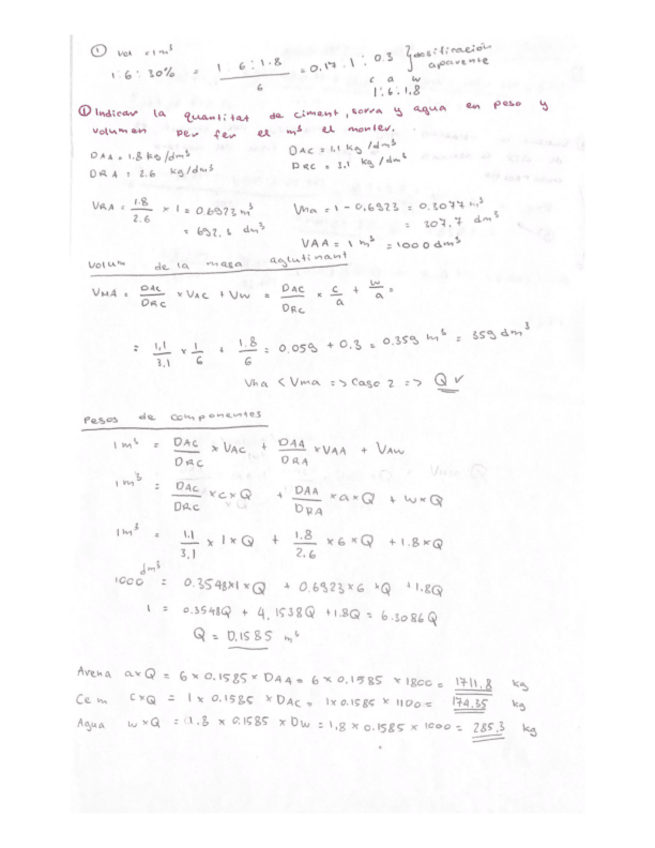 ① Vol = 1 m³
1 : 6 : 30% = 1 : 6 : 1.8 / 6 = 0.17 : 1 : 0.3 } dosificación aparente
c a w
1 : 6 : 1.8
① Indicar la quantitat de ciment, sorra y agua en peso y
volumen per fer el m³ el morter.
DAA = 1.8 kg/dm³ DAC = 1.1 kg/dm³
DRA = 2.6 kg/dm³ DRC = 3.1 kg/dm³
VRA = 1.8/2.6 × 1 = 0.6923 m³ Vha = 1 - 0.6923 = 0.3077 m³
= 692.3 dm³ = 307.7 dm³
VAA = 1 m³ = 1000 dm³
Volum de la masa aglutinant
VMA = DAC/DRC × VAC + Vw = DAC/DRC × c/a + w/a =
= 1.1/3.1 × 1/6 + 1.8/6 = 0.059 + 0.3 = 0.359 m³ = 359 dm³
Vha < Vma => Caso 2 => Q ✓
Pesos de componentes
1 m³ = DAC/DRC × VAC + DAA/DRA × VAA + VAW
1 m³ = DAC/DRC × c × Q + DAA/DRA × a × Q + w × Q
1 m³ = 1.1/3.1 × 1 × Q + 1.8/2.6 × 6 × Q + 1.8 × Q
1000 dm³ = 0.3548 × 1 × Q + 0.6923 × 6 × Q + 1.8Q
1 = 0.3548Q + 4.1538Q + 1.8Q = 6.3086Q
Q = 0.1585 m³
Arena a×Q = 6 × 0.1585 × DAA = 6 × 0.1585 × 1800 = 1711.8 kg
Cem c×Q = 1 × 0.1585 × DAC = 1 × 0.1585 × 1100 = 174.35 kg
Agua w×Q = 1.8 × 0.1585 × Dw = 1.8 × 0.1585 × 1000 = 285.3 kg